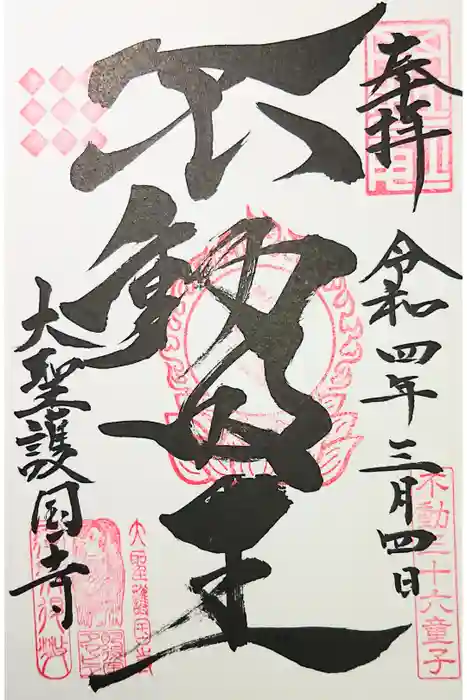 奉拝
令和四年三月四日
不動三十六童子
不動尊王
大聖護国寺
大聖護国寺